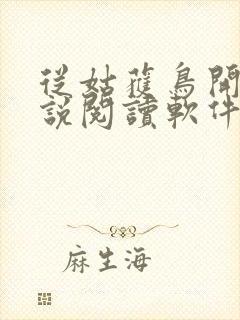 從姑獲鳥開
說閱讀軟件
麻生海